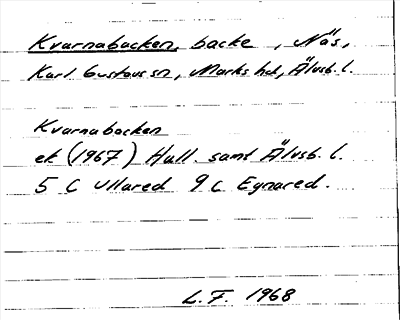 Kvarnabacken, backe, Näs,
Karl Gustavs sn, Marks hd, Älvsb. l.
Kvarnabacken
ek (1967) Hall. samt Älvsb. l.
5 C Ullared 9 C Eynared.
L.F. 1968